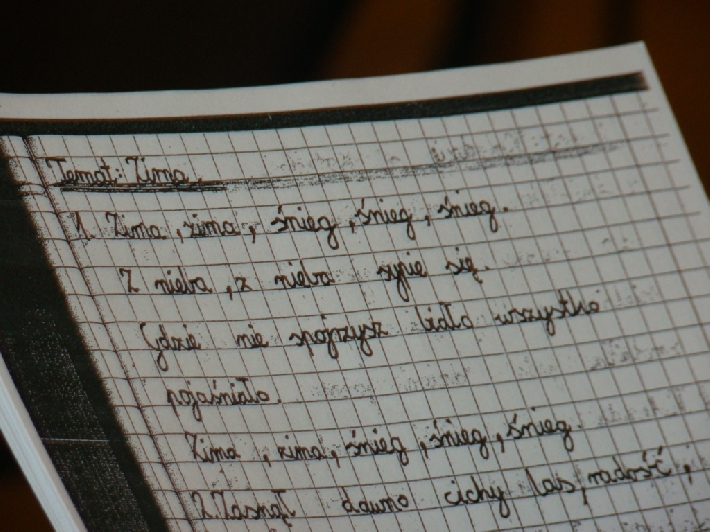 Temat: Zima.
1. Zima, zima, śnieg, śnieg, śnieg.
Z nieba, z nieba sypie się.
Gdzie nie spojrzysz biało wszystko
pojaśniało.
Zima, zima, śnieg, śnieg, śnieg.
2. Zasnął dawno cichy las, radość,